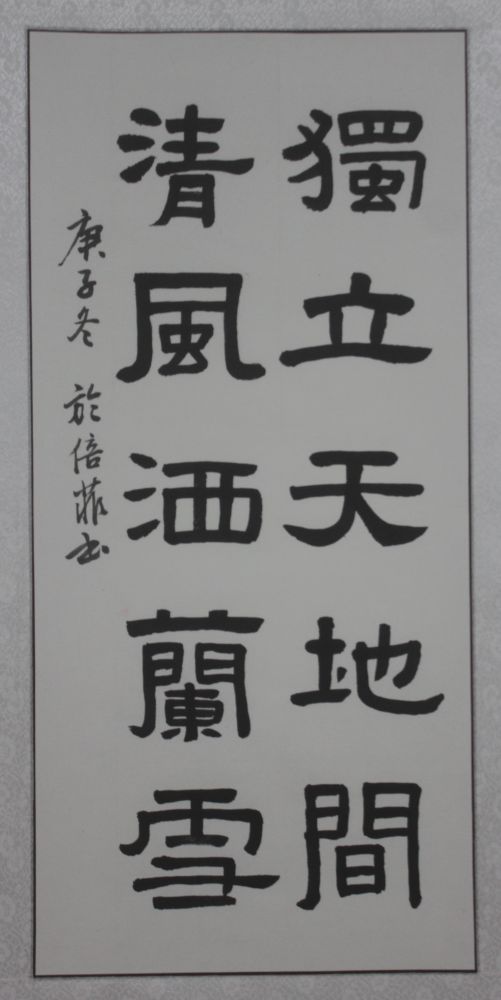 獨立天地間
清風洒蘭雪
庚子冬 於倍菲书